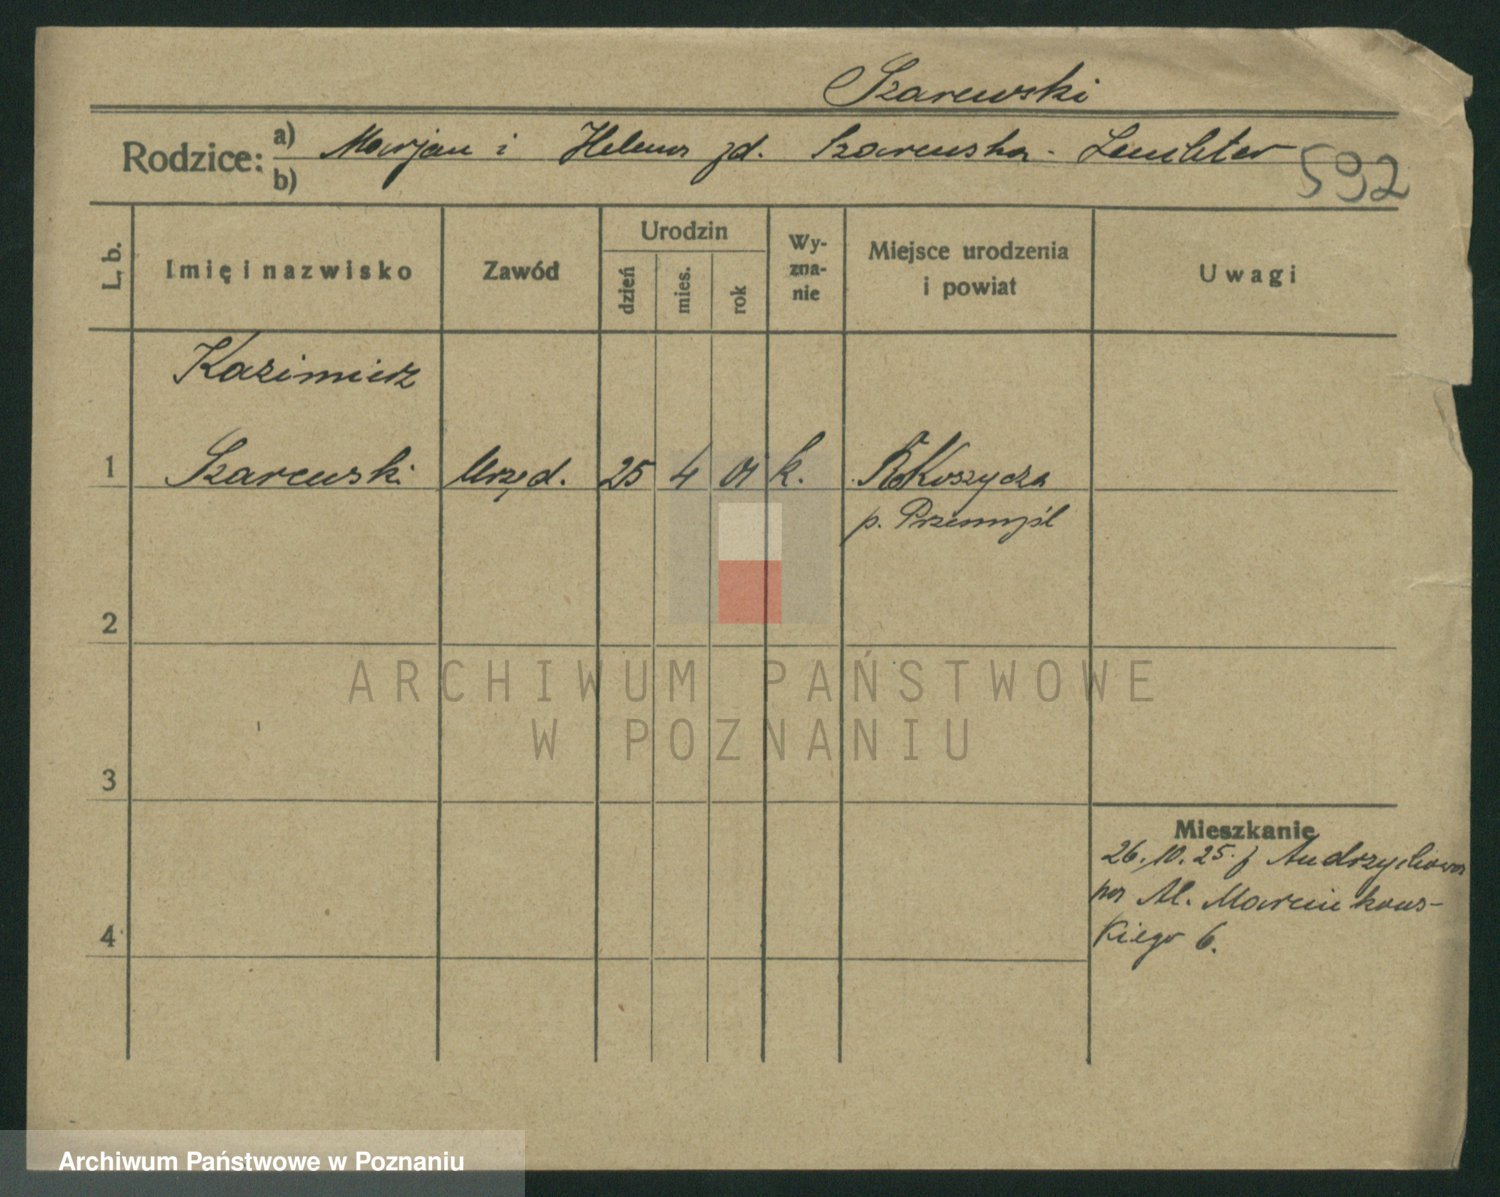 Szarewski
Rodzice: a) Marjan i Helena zd. Szarewska - 
b)
592
L. b.
Imię i nazwisko
Zawód
Urodzin
dzień
mies.
rok
Wy-
zna-
nie
Miejsce urodzenia
i powiat
Uwagi
Kazimierz
1 Szarewski Urzęd. 25 4 01 k.
p. Przemyśl
2
3
4
Mieszkanie
26.10.25. z Andrzychowa
na Al. Marcinkows-
kiego 6.
ARCHIWUM PAŃSTWOWE
W POZNANIU
Archiwum Państwowe w Poznaniu